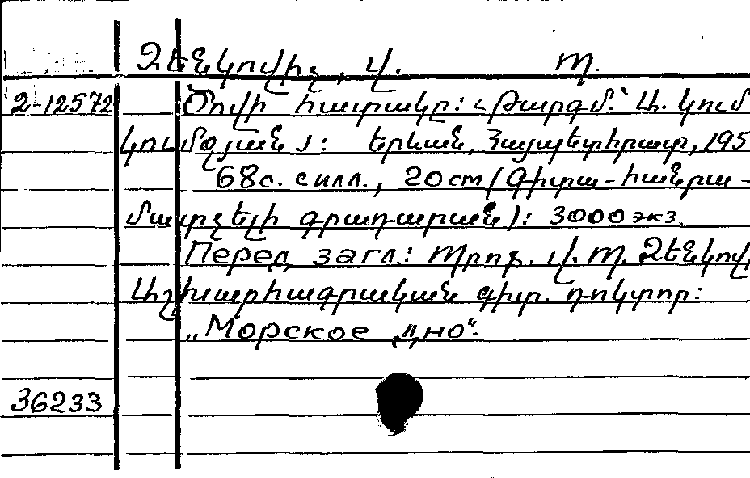 Զենկովիչ, Վ. Պ.
2-12572 Ծովի հատակը: (Թարգմ.՝ Ա. Կում
կումջյան): Երևան, Հայպետհրատ, 195
68с. с илл., 20cm (Գիտա-հանրա-
մատչելի գրադարան): 3000 экз.
Перед загл.: Պրոֆ. Վ. Պ. Զենկով
Աշխարհագրական գիտ. դոկտոր:
„Морское „но“.
36233